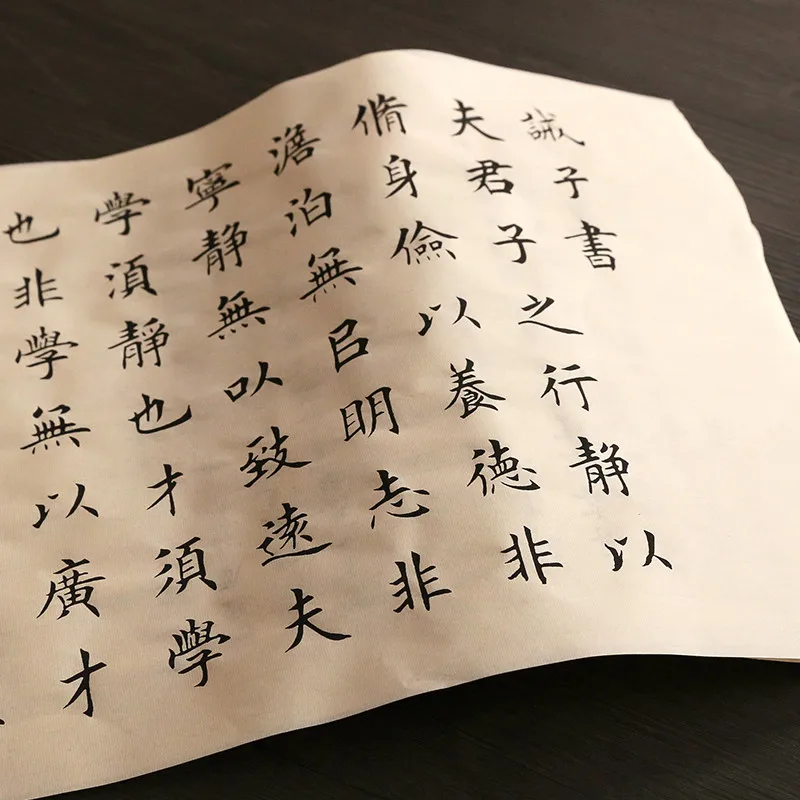 誡子書
夫君子之行静以
脩身儉以養德非
澹泊無㠯明志非
寧静無以致遠夫
學須静也才須學
也非學無以廣才